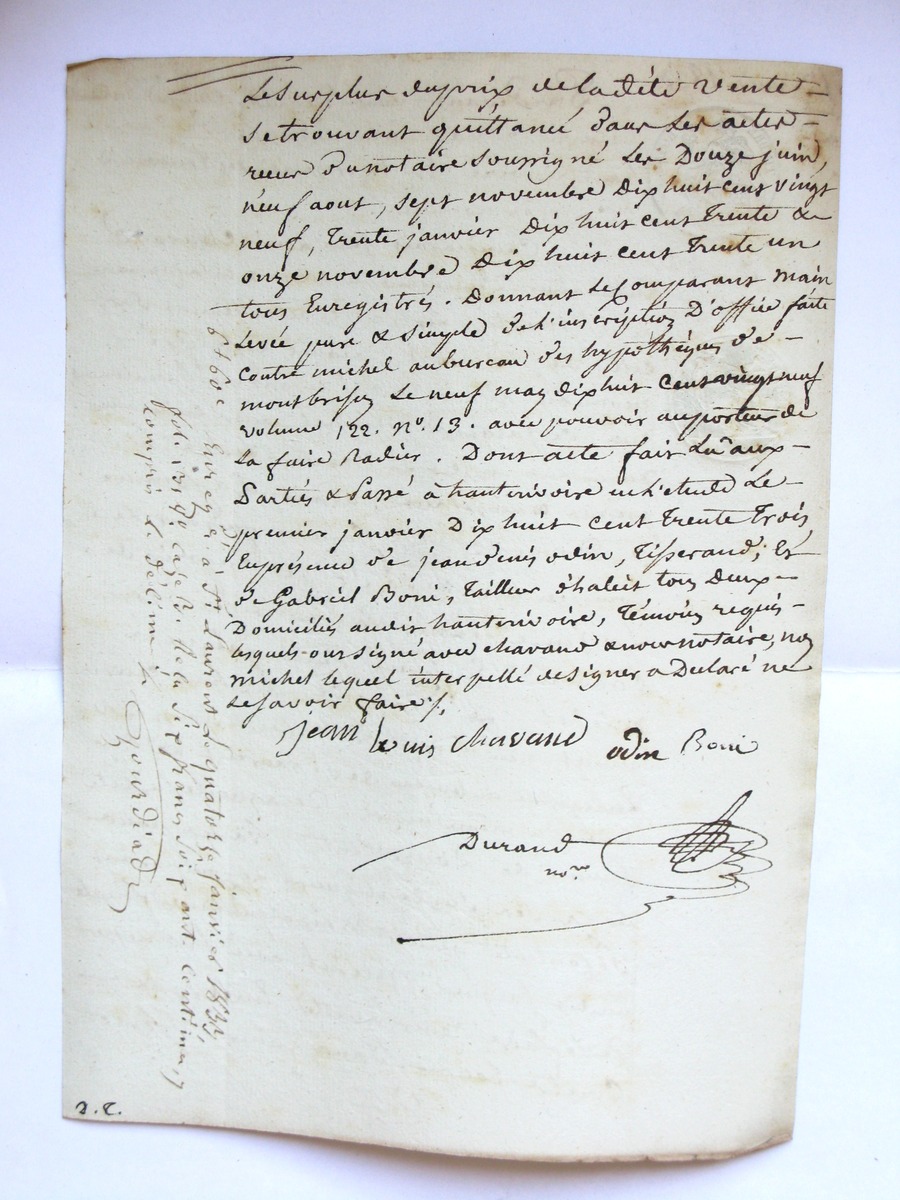 Le surplus du prix de la dite vente
se trouvant quittancé dans les actes
reçus du notaire soussigné les Douze juin,
neuf aout, sept novembre dix huit cent vingt
neuf, trente janvier dix huit cent trente &
onze novembre dix huit cent trente un
tous Enregistrés. Donnant le comparant main
levée pure & simple de l'inscription D'office faite
contre michel au bureau des hypothèques de
montbrison le neuf may dix huit cent vingt neuf
volume 122. N°. 13. avec pouvoir au porteur de
la faire Radier. Dont acte fait Lu aux
Parties & Passé à hauterivoire en l'etude Le
premier janvier Dix huit cent trente trois
En présence de jean denis odin, Tisserand, Et
de Gabriel Boni, Tailleur d'habit tous Deux
Domiciliés audit hauterivoire, Témoins requis
lesquels ont signé avec chavand & nous notaire, non
michel lequel interpellé de signer a Declaré ne
le savoir faire /.
jean louis chavand odin Boni
Durand
no.re
6f 60c
Enregé à St Laurent le quatorze janvier 1833,
folio 131 vo. case Reçu six francs soixante centimes,
compris le décime
Gourdiad
2. C.